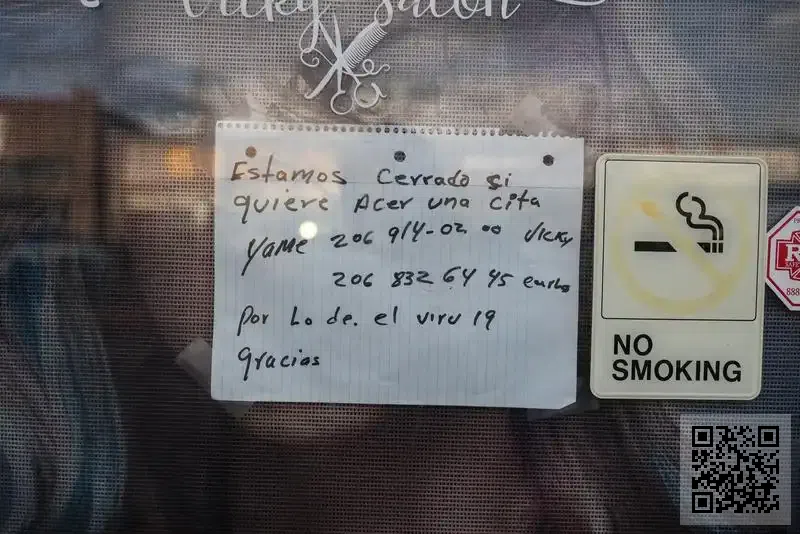 Vicky Salon
Estamos Cerrado si
quiere Acer una cita
YaMe 206 914-02 00 Vicky
206 832 64 45
Por Lo de. el viru 19
gracias
NO
SMOKING
R
888